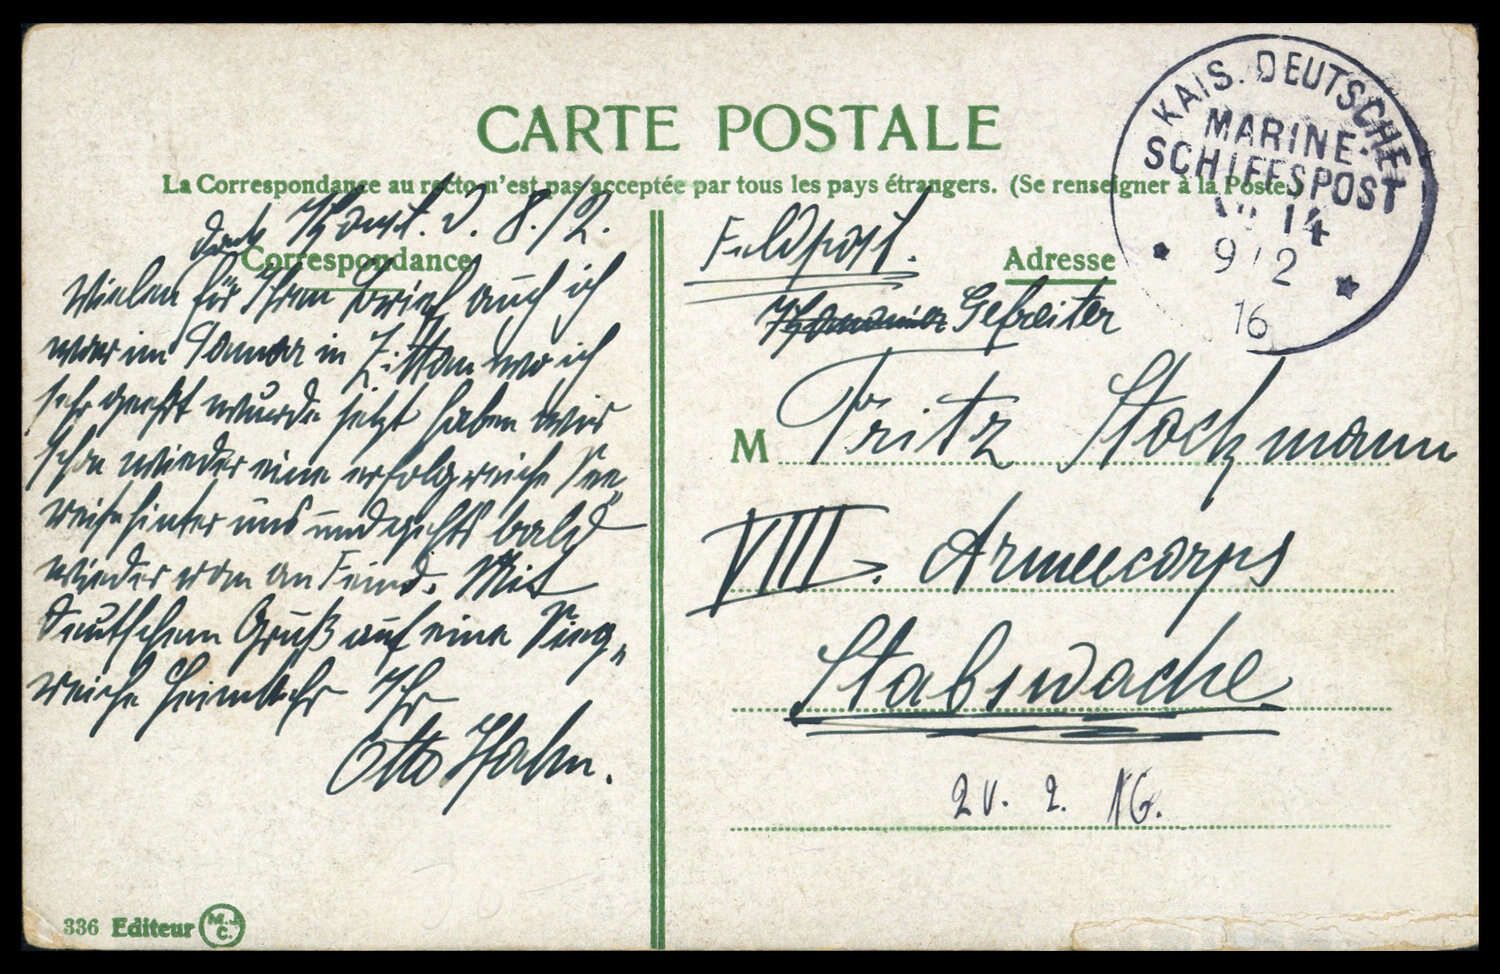 CARTE POSTALE
La Correspondance au recto n'est pas acceptée par tous les pays étrangers. (Se renseigner à la Poste.)
Correspondance
Adresse
KAIS. DEUTSCHE
MARINE-
SCHIFFSPOST
No 14
9 2
16
8./2.
Dank
Vielen für Ihren Brief auch ich
war im Januar in Zittau wo ich
sehr geehrt wurde jetzt haben wir
schon wieder eine erfolgreiche See
reise hinter uns und gehts bald
wieder ran an Feind. Mit
Deutschem Gruß auf eine Sieg„
reiche Heimkehr Ihr
Otto Hahn.
Feldpost.
Gefreiter
M Fritz Stockmann
VIII. Armeecorps
Stabswache
20. 2. 16.
336 Editeur M.J. C.